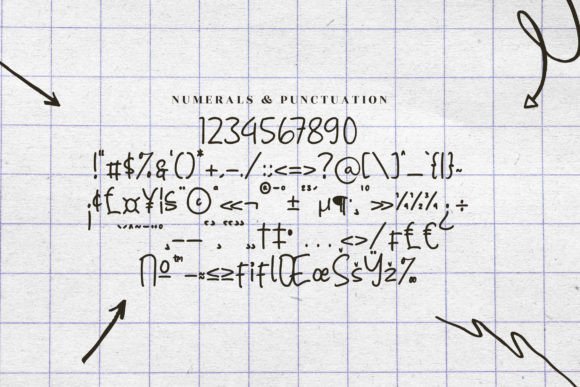 NUMERALS & PUNCTUATION
1234567890
!"#$%&'()*+,-./:;<=>?@[\]^_`{|}~
¡¢£¤¥¦§¨©ª«¬®¯°±²³´µ¶·¸¹º»¼½¾¿÷
…‹›⁄₣₤€
∏º™−≈≤≥fiflŒœŠšŸž‰